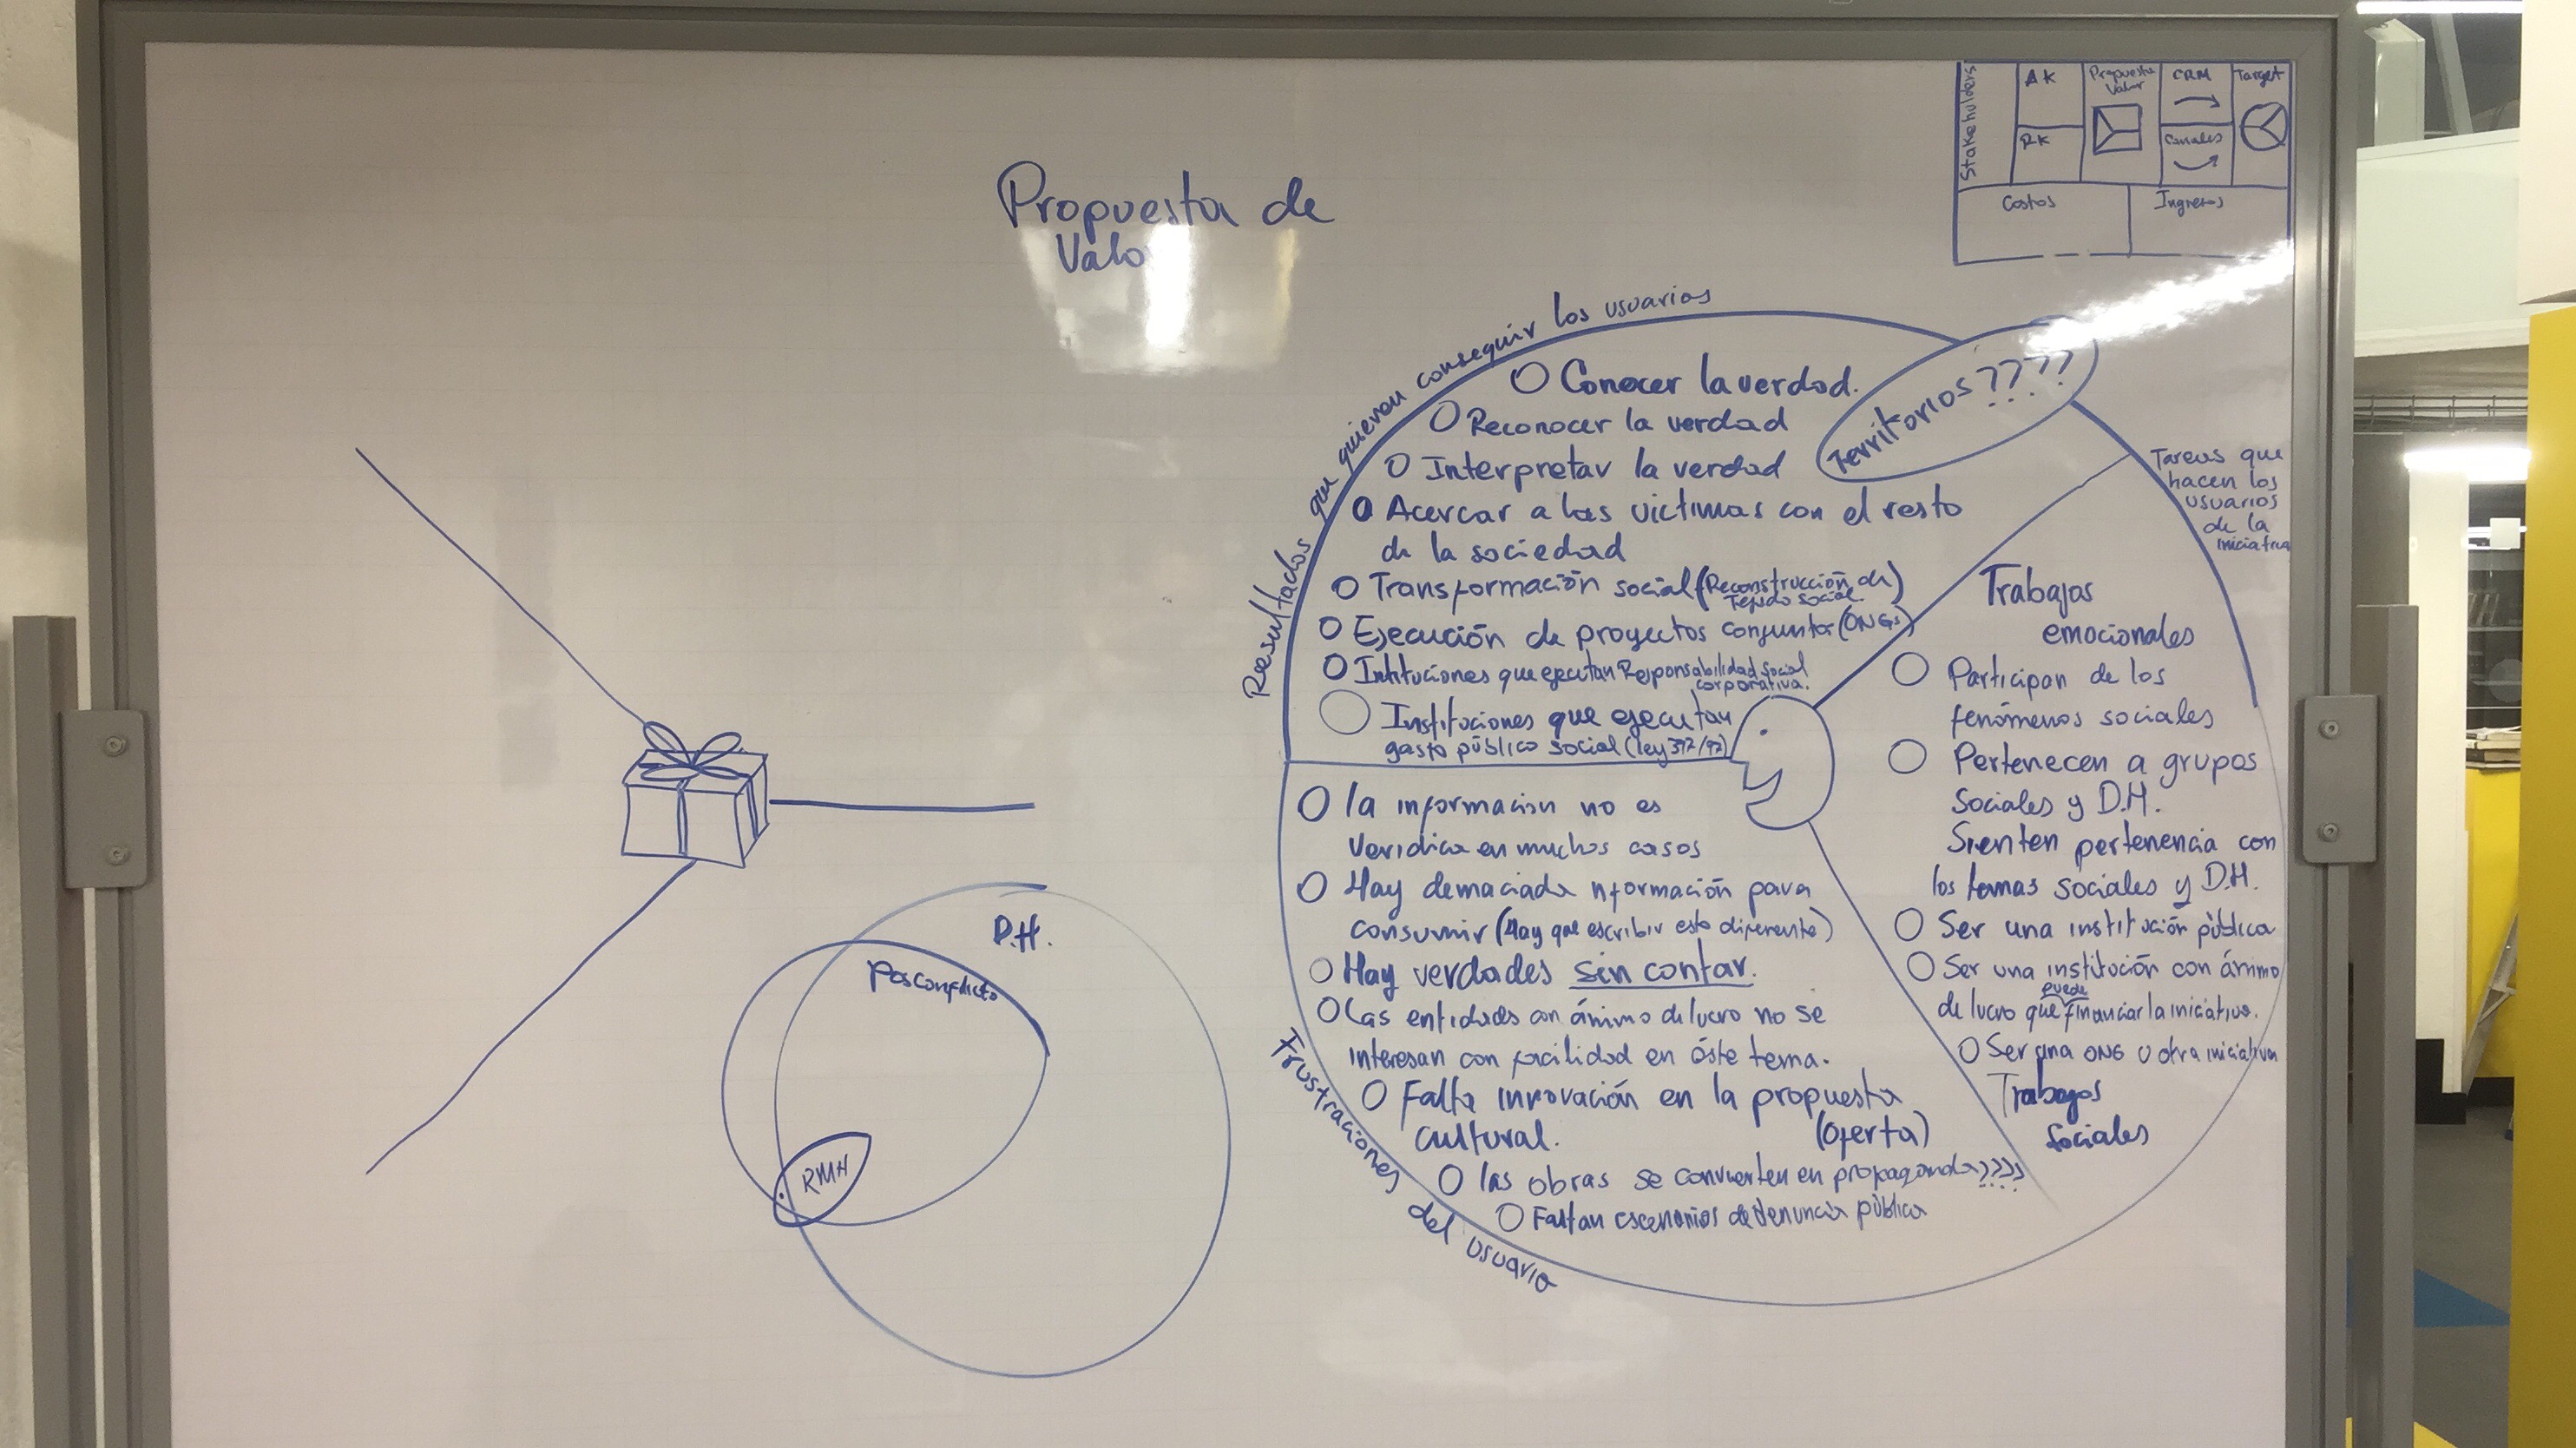 Propuesta de
Valo
Stakehulders
AK
RK
Propuesta
Valor
CRM
Canales
Target
Costos
Ingresos
Resultados que quieren conseguir los usuarios
O Conocer la verdad.
O Reconocer la verdad
O Interpretar la verdad
O Acercar a las victimas con el resto
de la sociedad
O Transformación social (Reconstrucción de)
Tejido social.
O Ejecución de proyectos conjuntos (ONGs)
O Intituciones que ejecutan Responsabilidad social
corporativa.
O Instituciones que ejecutan
gasto público social (ley 397/97)
Territorios????
Tareas que
hacen los
usuarios
de la
iniciativa
Trabajos
emocionales
O Participan de los
fenómenos sociales
O Pertenecen a grupos
Sociales y D.H.
Sienten pertenencia con
los temas sociales y D.H.
O Ser una institución pública
O Ser una institución con ánimo
de lucro que puede financiar la iniciativa.
O Ser una ONG u otra iniciativa
Trabajos
Sociales
O la informacion no es
veridica en muchos casos
O Hay demaciada nformación para
consumir (Hay que escribir esto diferente)
O Hay verdades sin contar.
O Las entidades con ánimo de lucro no se
interesan con facilidad en éste tema.
O Falta innovación en la propuesta
cultural. (oferta)
O las obras se convierten en propaganda????
O Faltan escenarios de denuncia pública
Frustraciones del usuario
D.H.
Posconflicto
RMH